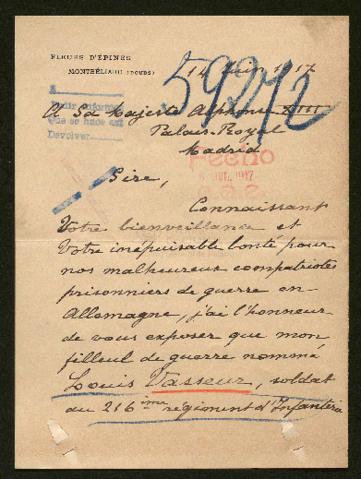 FERMES D'ÉPINES
MONTBÉLIARD (DOUBS)
14 Juin 1917
59272
A Sa Majesté Alphonse XIII
Pedir informes
que se hace así
Devolver
Palais-Royal
Madrid
Fecho
1917
Sire,
Connaissant
Votre bienveillance et
Votre inépuisable bonté pour
nos malheureux compatriotes
prisonniers de guerre en
Allemagne, j'ai l'honneur
de vous exposer que mon
filleul de guerre nommé
Louis Vasseur, soldat
au 216ième régiment d'Infanterie